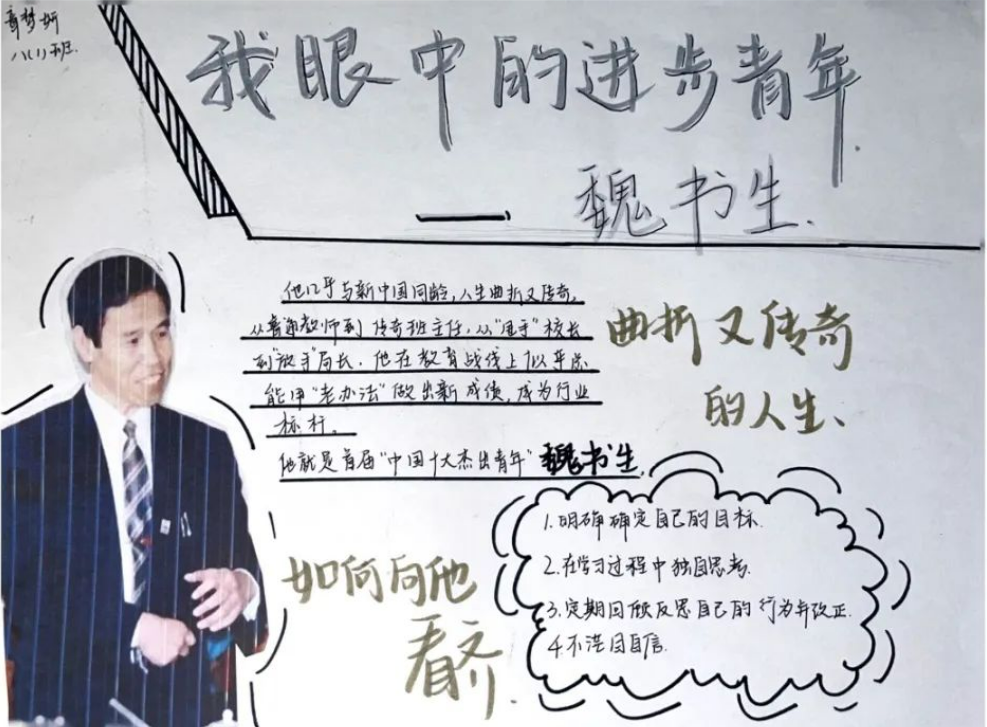 章梦妍
八(1)班.
我眼中的进步青年.
—— 魏书生.
他几乎与新中国同龄,人生曲折又传奇,
从普通教师到传奇班主任,从"甩手"校长
到"放手"局长.他在教育战线上似乎总
能用"老办法"做出新成绩,成为行业
标杆.
他就是首届"中国十大杰出青年"魏书生.
曲折又传奇
的人生、
1.明确确定自己的目标.
2.在学习过程中独自思考.
3.定期回顾反思自己的行为并改正.
4.不盲目自信.
如何向他
看齐.